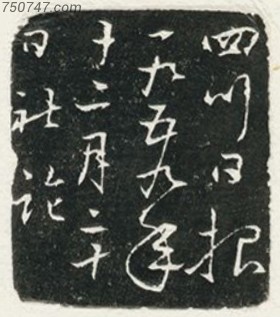 750747.com
四川日报
一九五九年
十二月二十
日社论